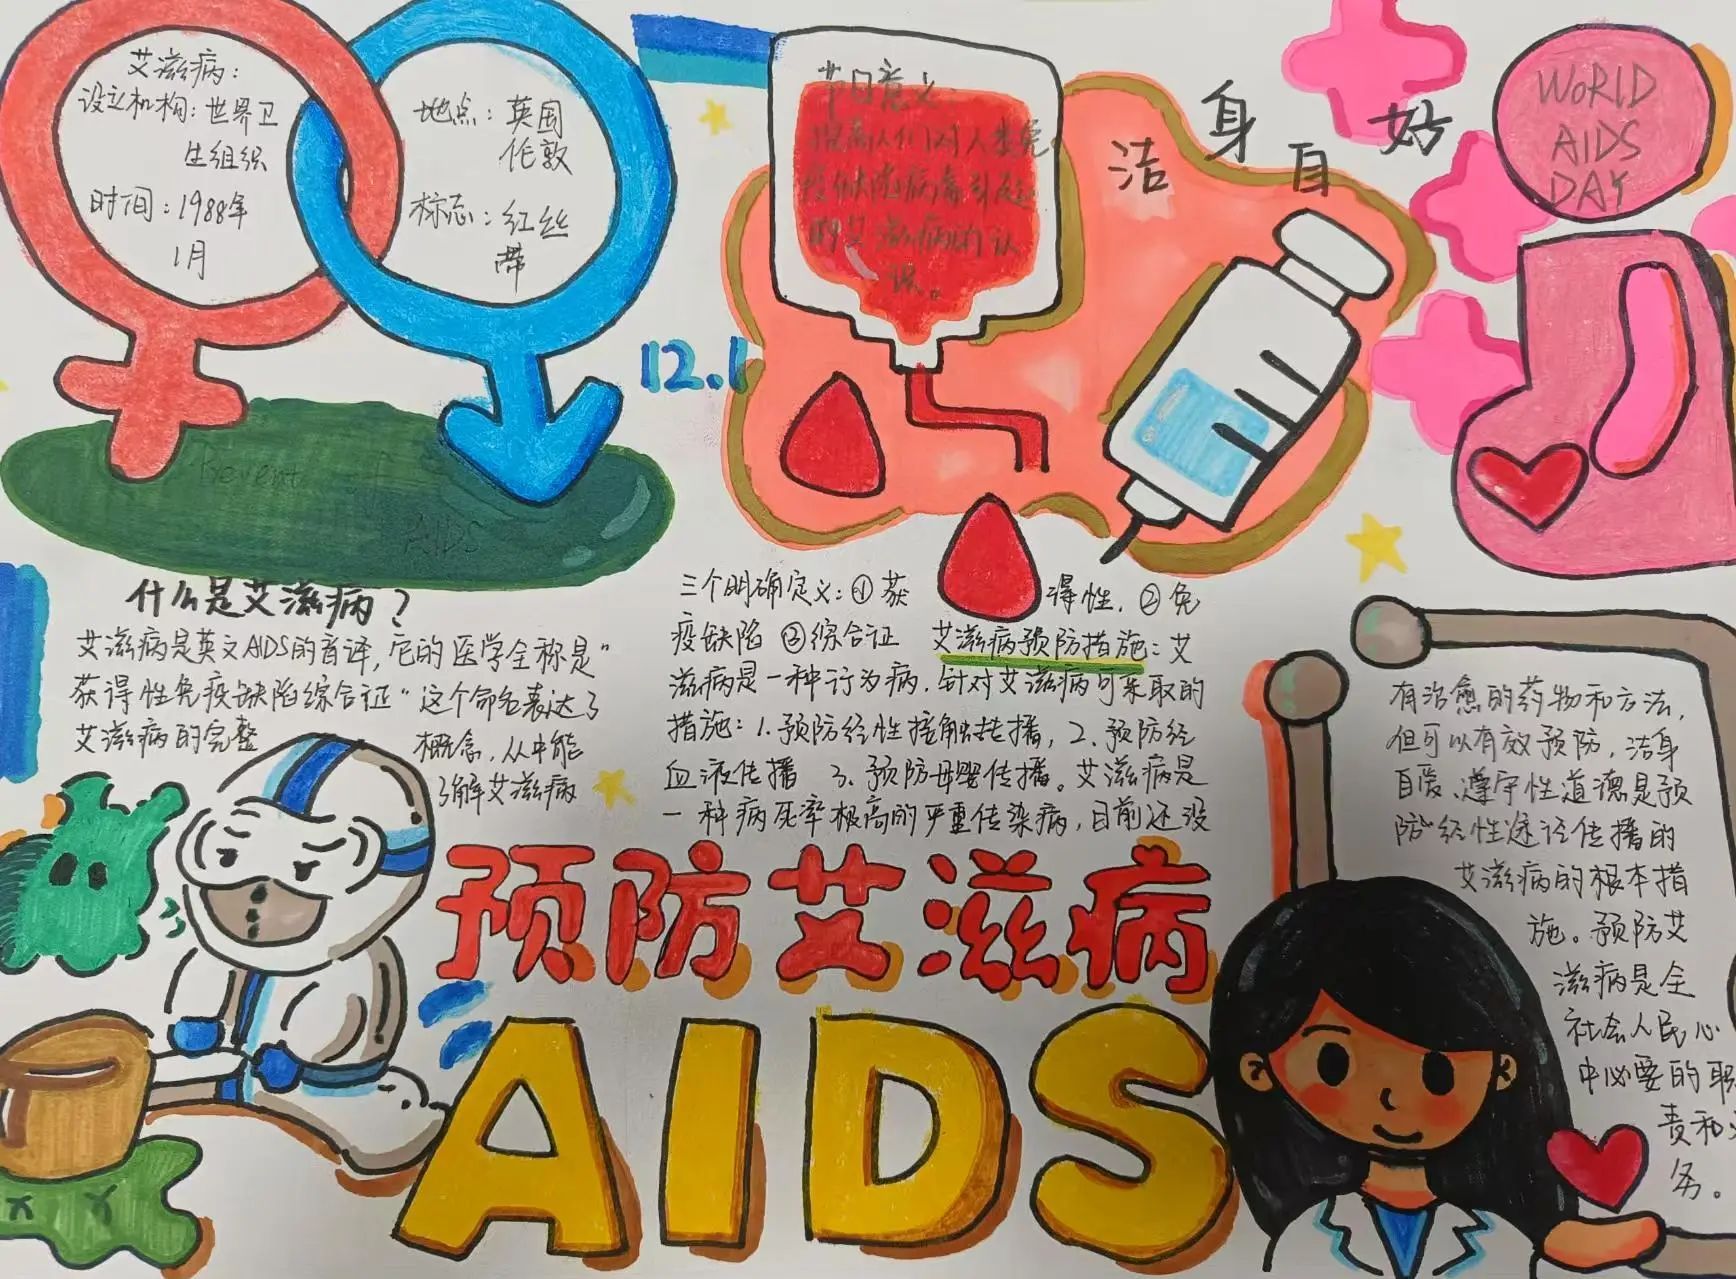 艾滋病:
设立机构:世界卫
生组织
时间:1988年
1月
地点:英国
伦敦
标志:红丝
带
12.1
节日意义:
提高人们对人类免
疫缺陷病毒引起
的艾滋病的认
识。
洁身自好
WORLD
AIDS
DAY
Prevent
AIDS
什么是艾滋病?
艾滋病是英文AIDS的音译,它的医学全称是"
获得性免疫缺陷综合证"这个命名表达了
艾滋病的完整概念,从中能
了解艾滋病
三个明确定义:①获得性,②免
疫缺陷 ③综合证 艾滋病预防措施:艾
滋病是一种行为病.针对艾滋病可采取的
措施:1.预防经性接触传播,2.预防经
血液传播 3.预防母婴传播。艾滋病是
一种病死率极高的严重传染病,目前还没
有治愈的药物和方法,
但可以有效预防,洁身
自爱、遵守性道德是预
防经性途径传播的
艾滋病的根本措
施。预防艾
滋病是全
社会人民心
中必要的职
责和义
务。
预防艾滋病
AIDS